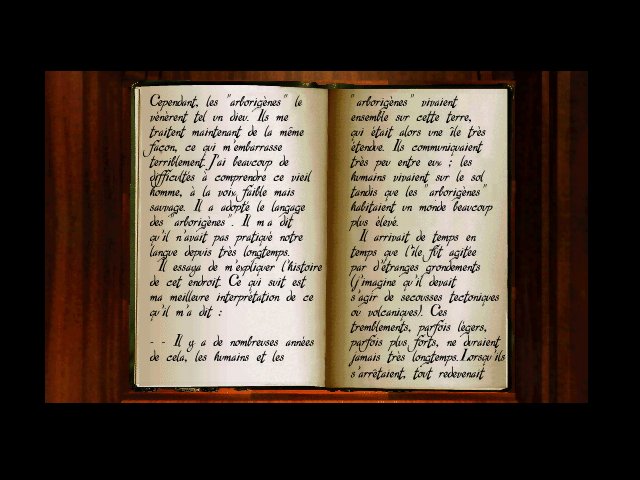 Cependant, les "arborigènes" le
vénèrent tel un dieu. Ils me
traitent maintenant de la même
façon, ce qui m'embarrasse
terriblement. J'ai beaucoup de
difficultés à comprendre ce vieil
homme, à la voix faible mais
sauvage. Il a adopté le langage
des "arborigènes". Il m'a dit
qu'il n'avait pas pratiqué notre
langue depuis très longtemps.
Il essaya de m'expliquer l'histoire
de cet endroit. Ce qui suit est
ma meilleure interprétation de ce
qu'il m'a dit :
- - Il y a de nombreuses années
de cela, les humains et les
"arborigènes" vivaient
ensemble sur cette terre,
qui était alors une île très
étendue. Ils communiquaient
très peu entre eux : les
humains vivaient sur le sol
tandis que les "arborigènes"
habitaient un monde beaucoup
plus élevé.
Il arrivait de temps en
temps que l'île fût agitée
par d'étranges grondements
(j'imagine qu'il devait
s'agir de secousses tectoniques
ou volcaniques). Ces
tremblements, parfois légers,
parfois plus forts, ne duraient
jamais très longtemps. Lorsqu'ils
s'arrêtaient, tout redevenait